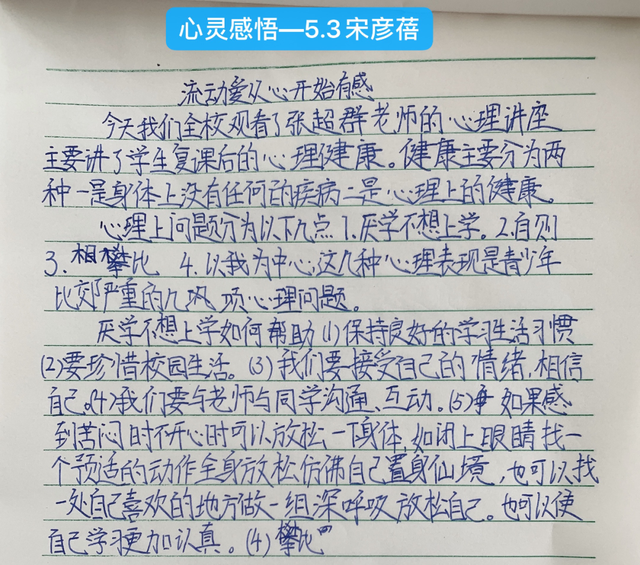 心灵感悟—5.3宋彦蓓
流动爱从心开始有感
今天我们全校观看了张超群老师的心理讲座
主要讲了学生复课后的心理健康。健康主要分为两
种一是身体上没有任何的疾病二是心理上的健康。
心理上问题分为以下九点1.厌学不想上学。2.自则
3.相攀比 4.以我为中心,这几种心理表现是青少年
比较严重的几项心理问题。
厌学不想上学如何帮助(1)保持良好的学习生活习惯
(2)要珍惜校园生活。(3)我们要接受自己的情绪,相信
自己。(4)我们要与老师与同学沟通、互动。(5)如果感
到苦闷时不开心时可以放松一下身体,如闭上眼睛找一
个预适的动作全身放松仿佛自己置身仙境,也可以找
一处自己喜欢的地方做一组深呼吸放松自己。也可以使
自己学习更加认真。(4)攀比"